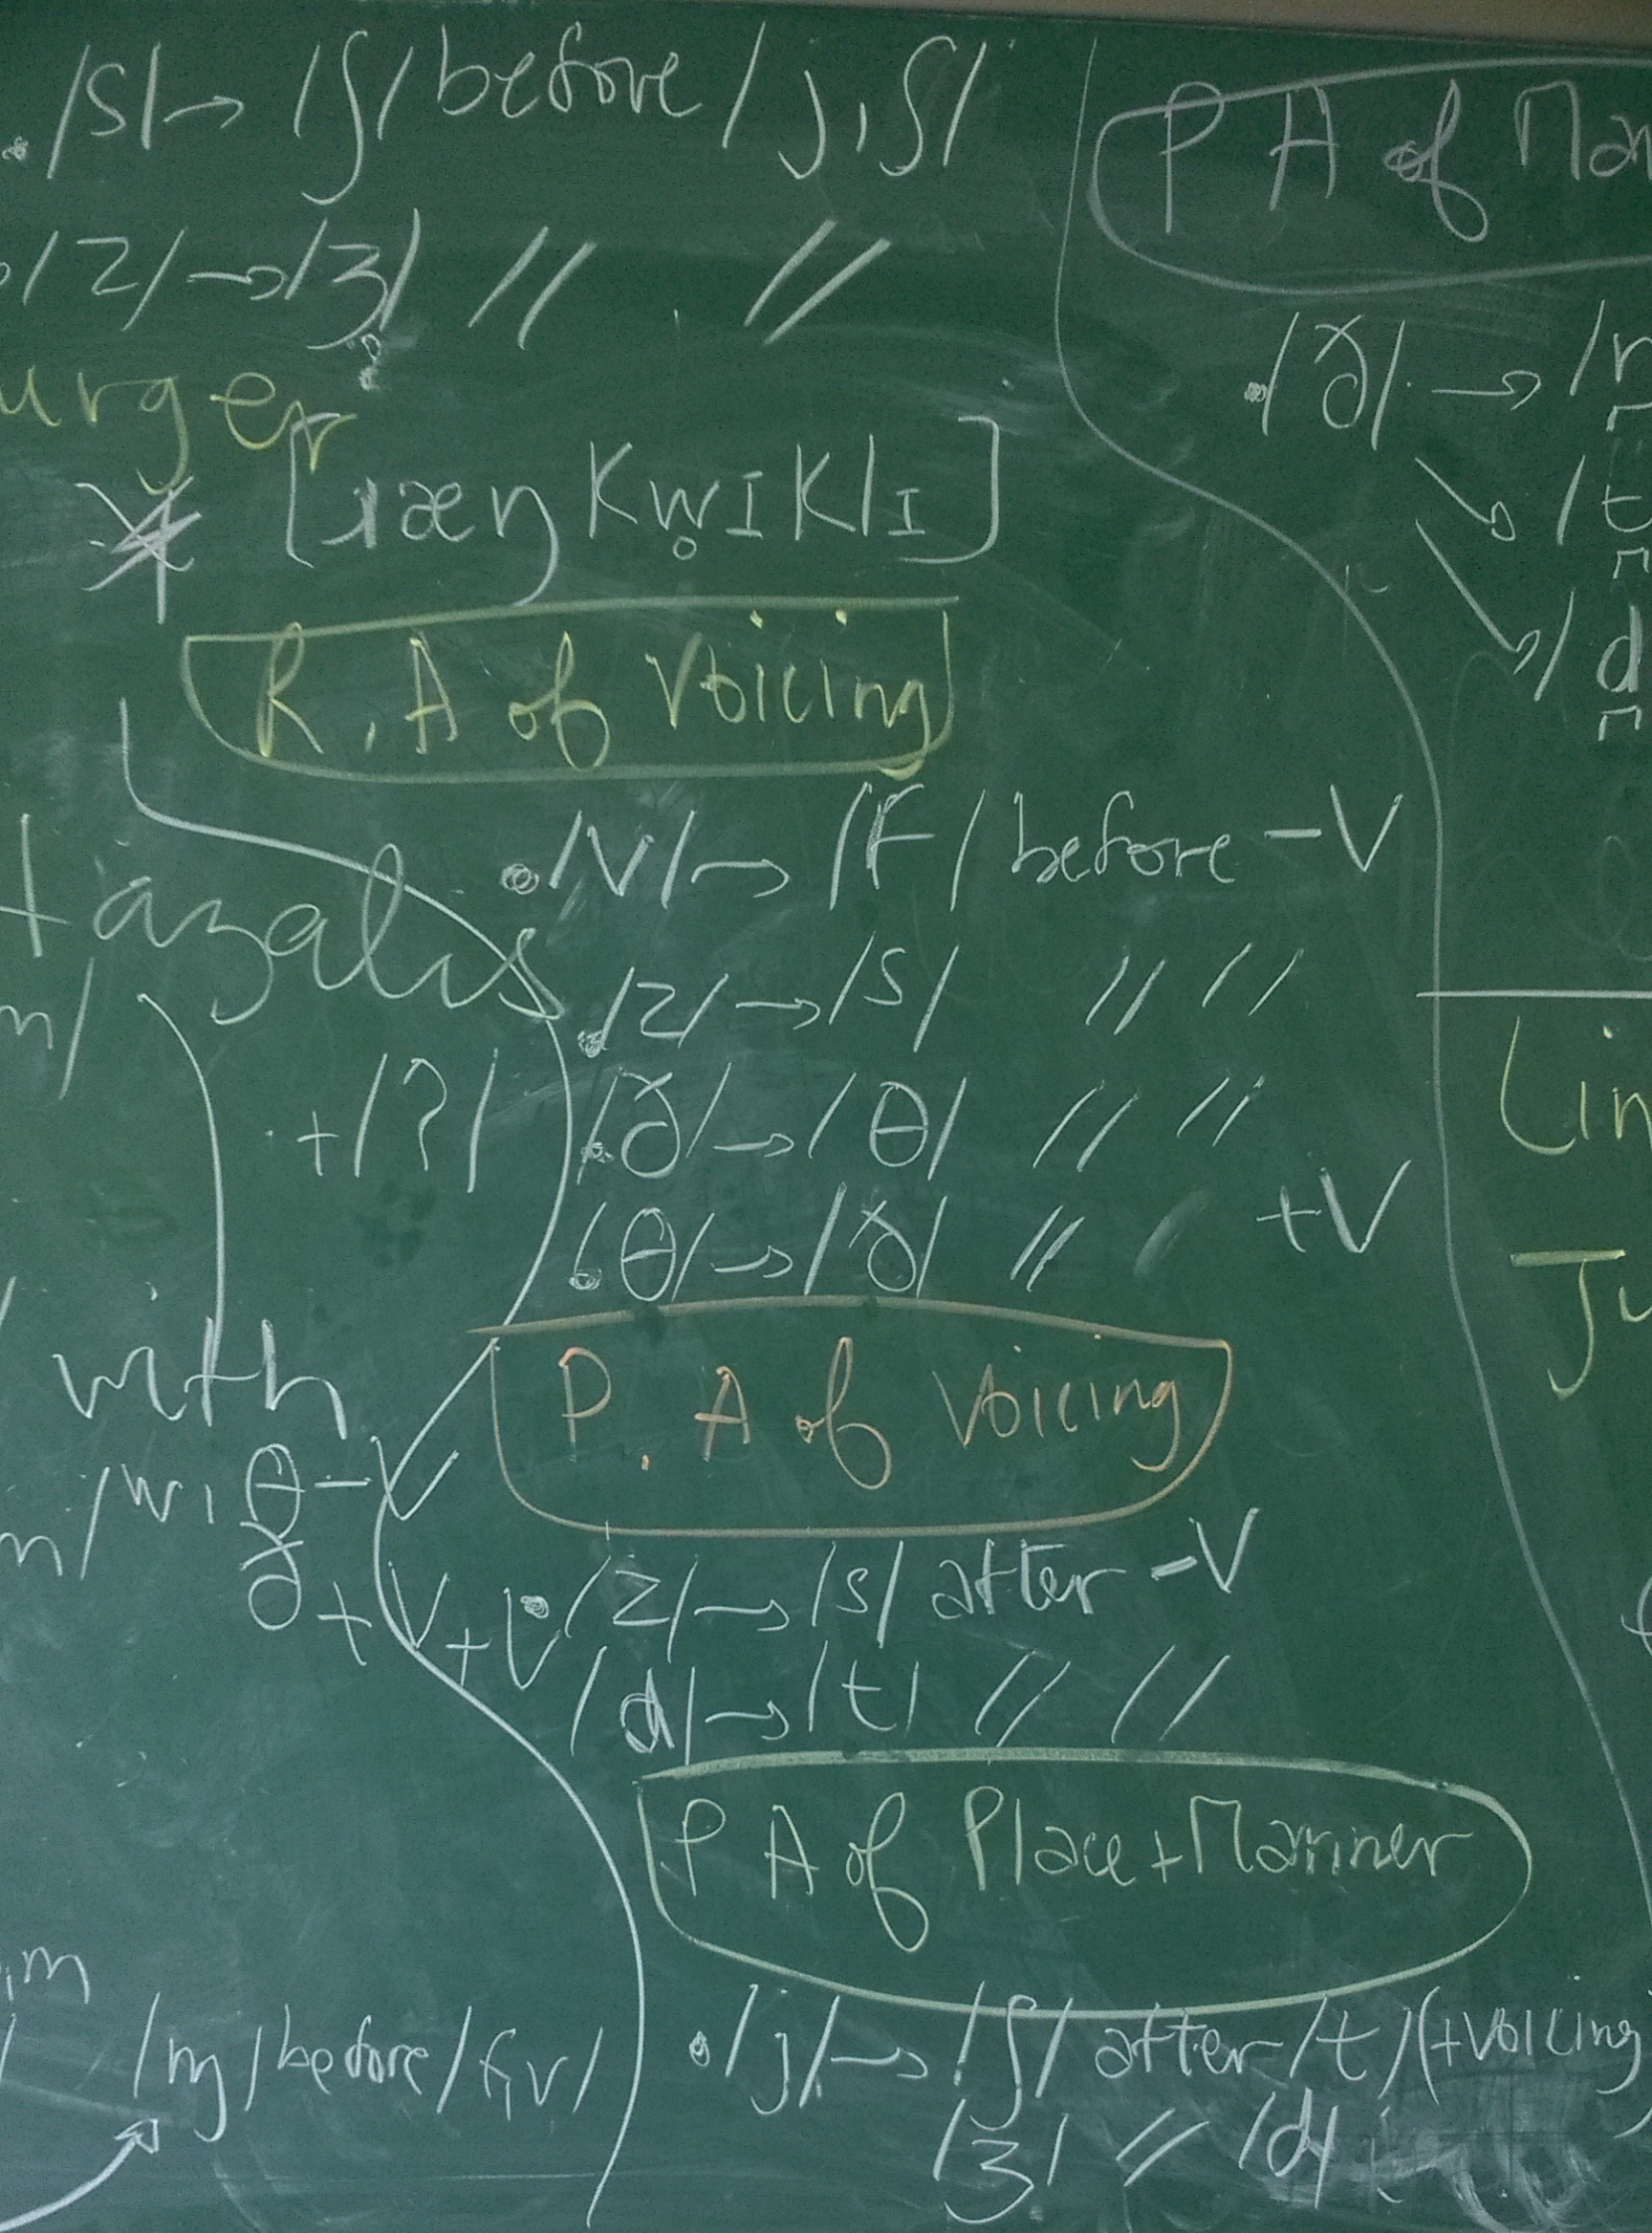 ./s/→ /ʃ/ before / j, ʃ/
/z/→/ʒ/ // //
urger
[ɹæŋkw̥ɪklɪ]
R. A of Voicing
./v/→ /f/ before -V
./z/→/s/ // //
./ð/→/θ/ // //
./θ/→/ð/ // +V
m/
+/ʔ/
with
/wɪθ-V
ð+V
+V
P. A of Voicing
./z/→/s/ after -V
/d/→/t/ // //
P A of Place+Manner
./j/→ /ʃ/ after /t/ (+voicing
/ʒ/ // /d/
/ɱ/ before /f,v/
P A of Man
./ð/ → /n
/t
/d
Lin
Ju